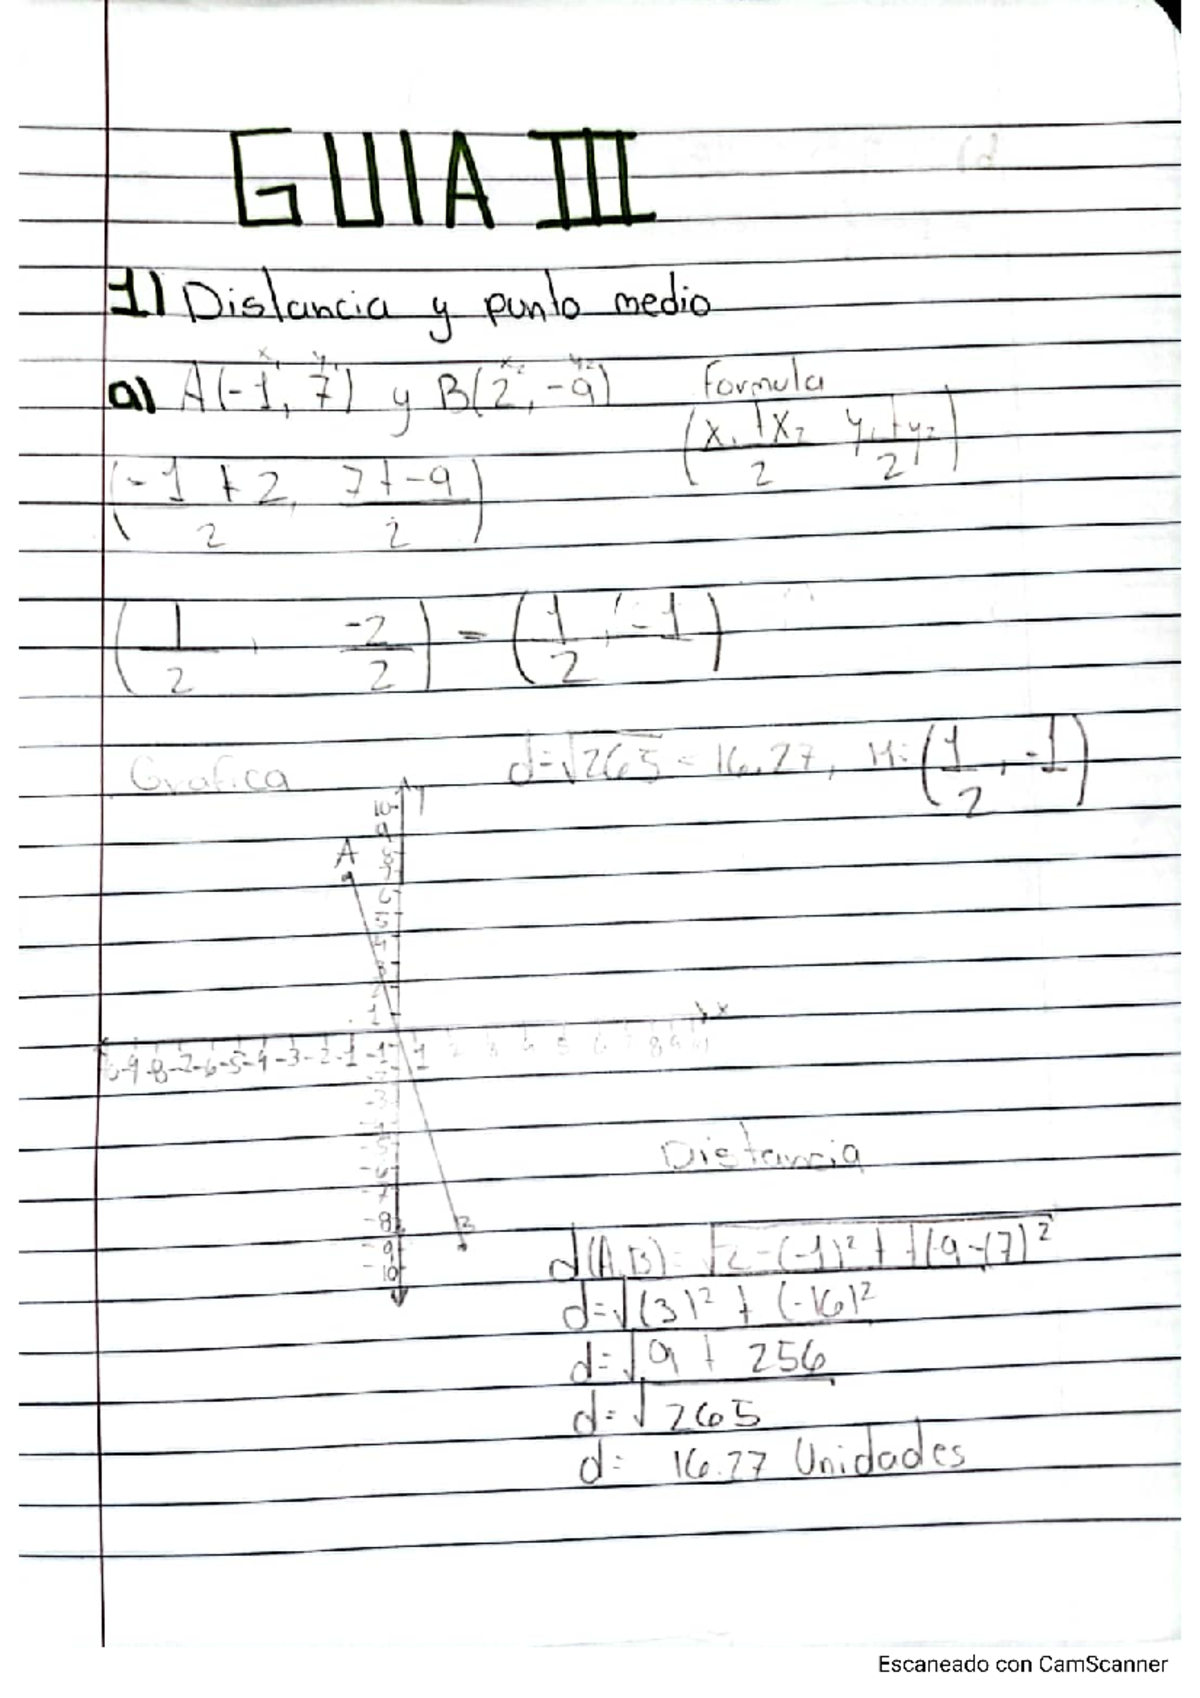 GUIA III
1) Distancia y punto medio
a) A(-1, 7) y B(2, -9) Formula
(x₁+x₂/2 y₁+y₂/2)
(-1+2/2, 7+-9/2)
(1/2, -2/2) = (1/2, -1)
Grafica d=√265 = 16.27, M=(1/2, -1)
y
10
9
A 8
7
6
5
4
3
2
1
x
-9 -8 -7 -6 -5 -4 -3 -2 -1 -1 1 2 3 4 5 6 7 8 9
-3
-4
-5
-6
-7
-8 B
-9
-10
Distancia
d(A,B)=√2-(-1)²+√(-9-(7)²
d=√(3)²+(-16)²
d=√9+256
d=√265
d= 16.27 Unidades
Escaneado con CamScanner